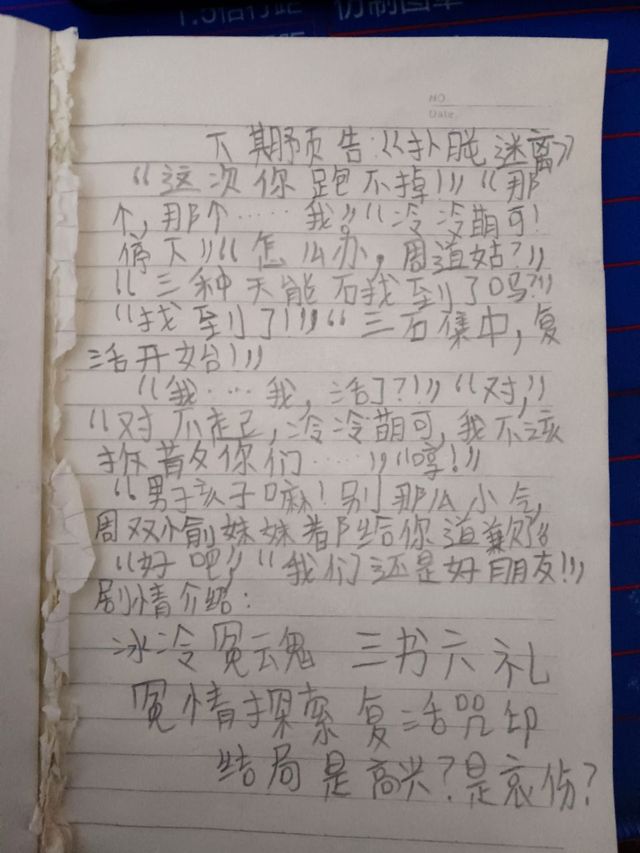 1.5倍行距
仿制图章
NO.
Date.
下期预告:《扑脱迷离》
“这次你跑不掉!”“那
个,那个……我”。“冷冷萌可!
停下”“怎么办,周道姑?”
“三种天能石找到了吗?”
“找到了!”“三石集中,复
活开始!”
“我……我,活了?!”“对,”
“对不起,冷冷萌可,我不该
拆散你们……”“哼!”
“男孩子嘛!别那么小气,
周双愉妹妹都给你道歉了”
“好吧”,“我们还是好朋友!”
剧情介绍:
冰冷冤魂 三书六礼
冤情探索 复活咒印
结局是高兴?是哀伤?